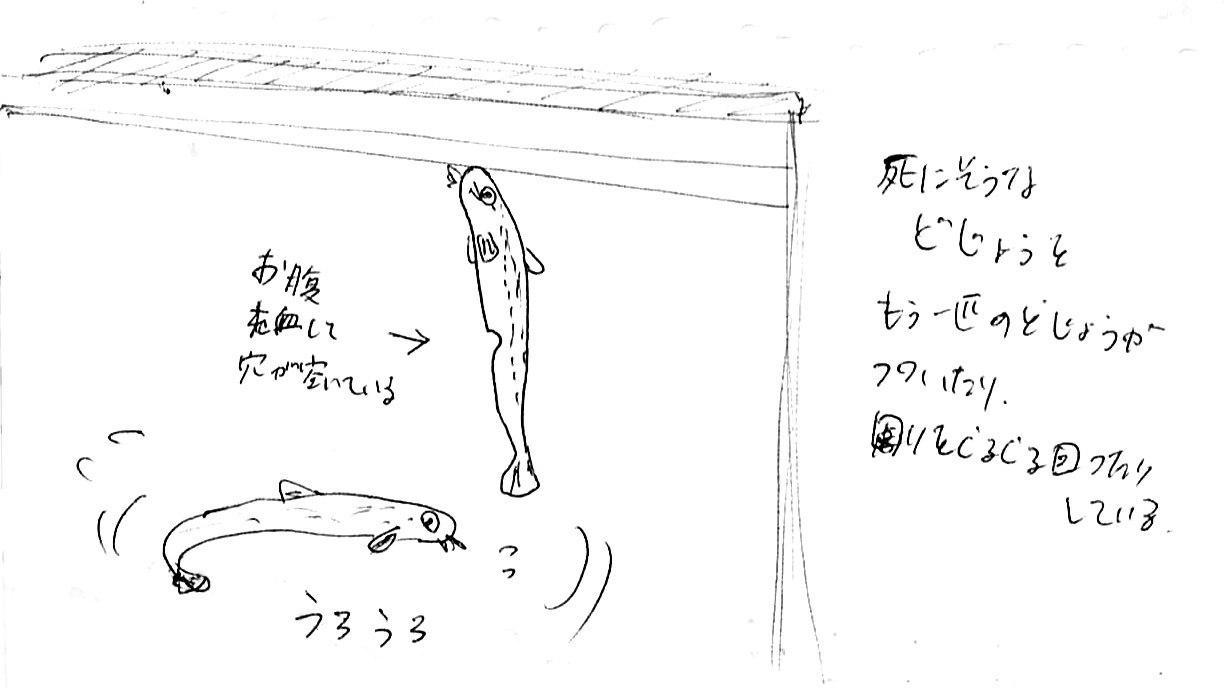 お腹
出血して
穴が空いている
うろうろ
死にそうな
どじょうを
もう一匹のどじょうが
つついたり、
周りをぐるぐる回ったり
している。